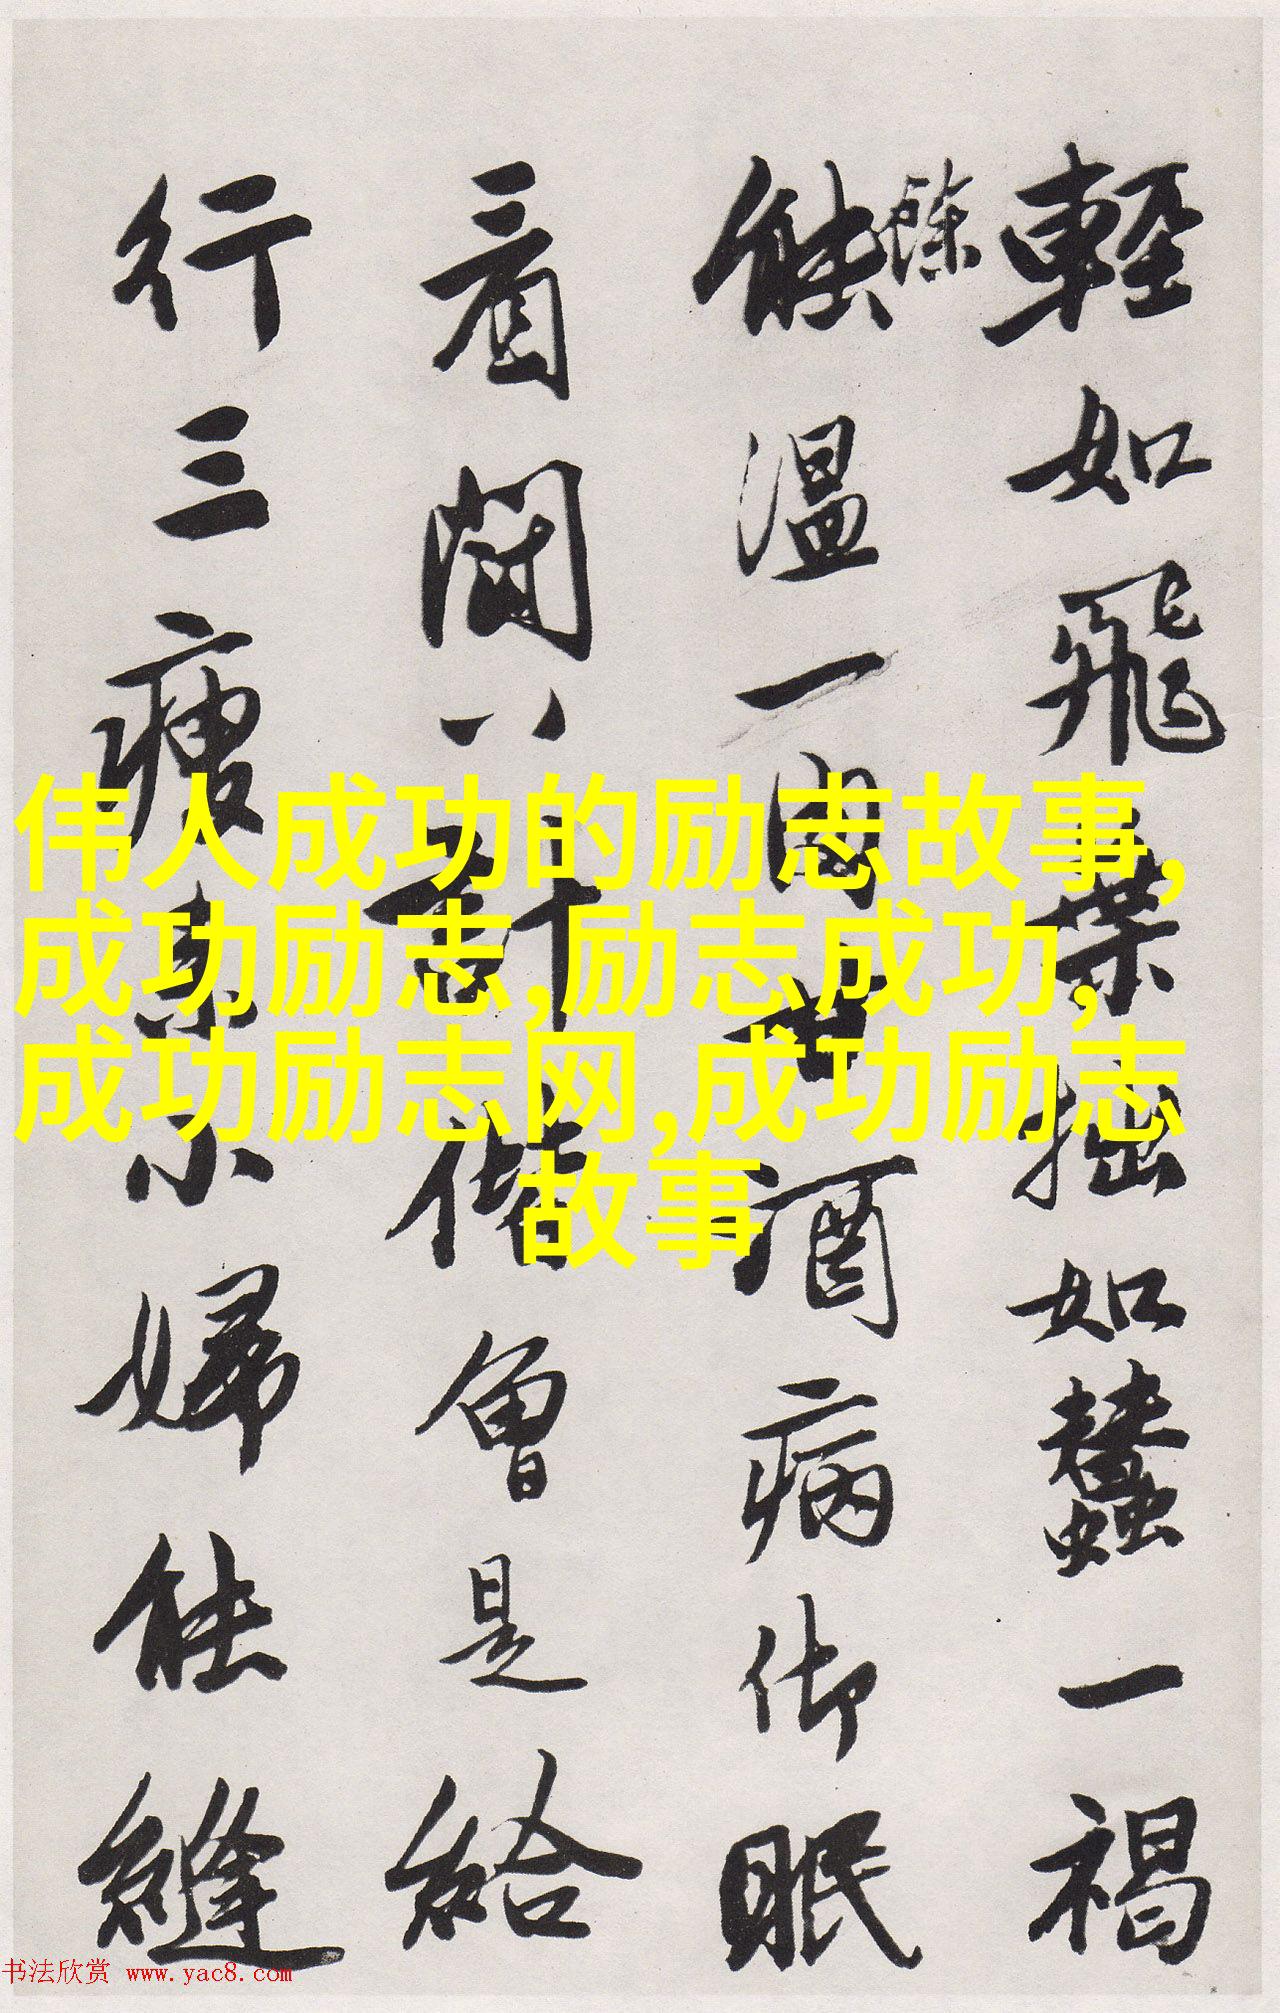 輕如飛葉拙如蠶一褐
餘
能溫一酒病御眠
看鬪計偕曾是給
行三瘦小婦能縫
伟人成功的励志故事,
成功励志,励志成功,
成功励志网,成功励志
故事
书法欣赏 www.yac8.com